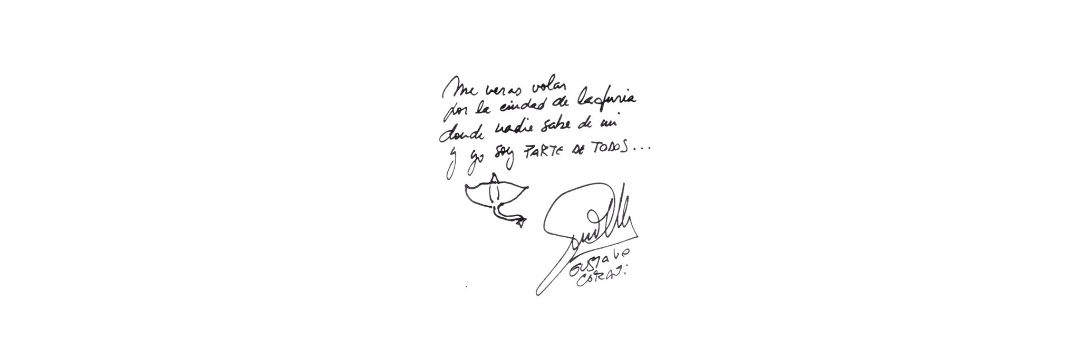 Me veras volar
por la ciudad de la furia
donde nadie sabe de mi
y yo soy PARTE DE TODOS...
GUSTAVO